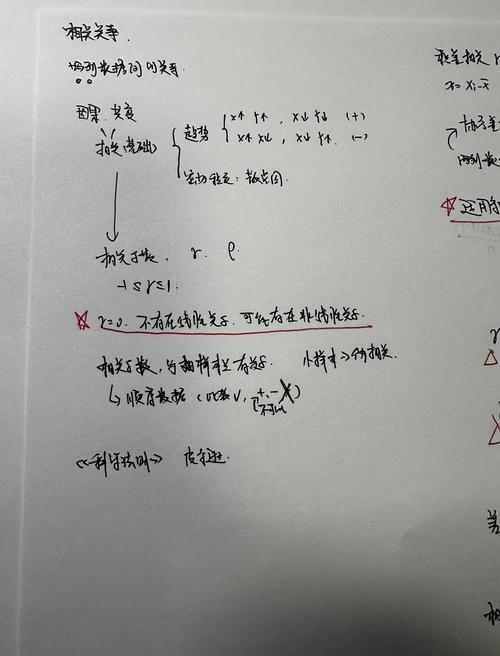 相关关系.
两列数据间的关系.
因果 共变
相关(基础)
趋势 x↑ y↑ , x↓ y↓ (+)
x↑ x↓ , x↓ y↑. (-)
: 散点图.
相关系数. r. ρ
-1≤r≤1.
☆ r=0. 不存在线性关系. 可能存在非线性关系.
相关系数, 与 样本 有关系. 小样本→ 相关.
↳ 顺序数据 (比较√, +.- X)
《科学法则》 皮尔逊.
积差相关 r
x= xi-x̄
协方差
两列数
☆ 运用
r
△
△
差
相